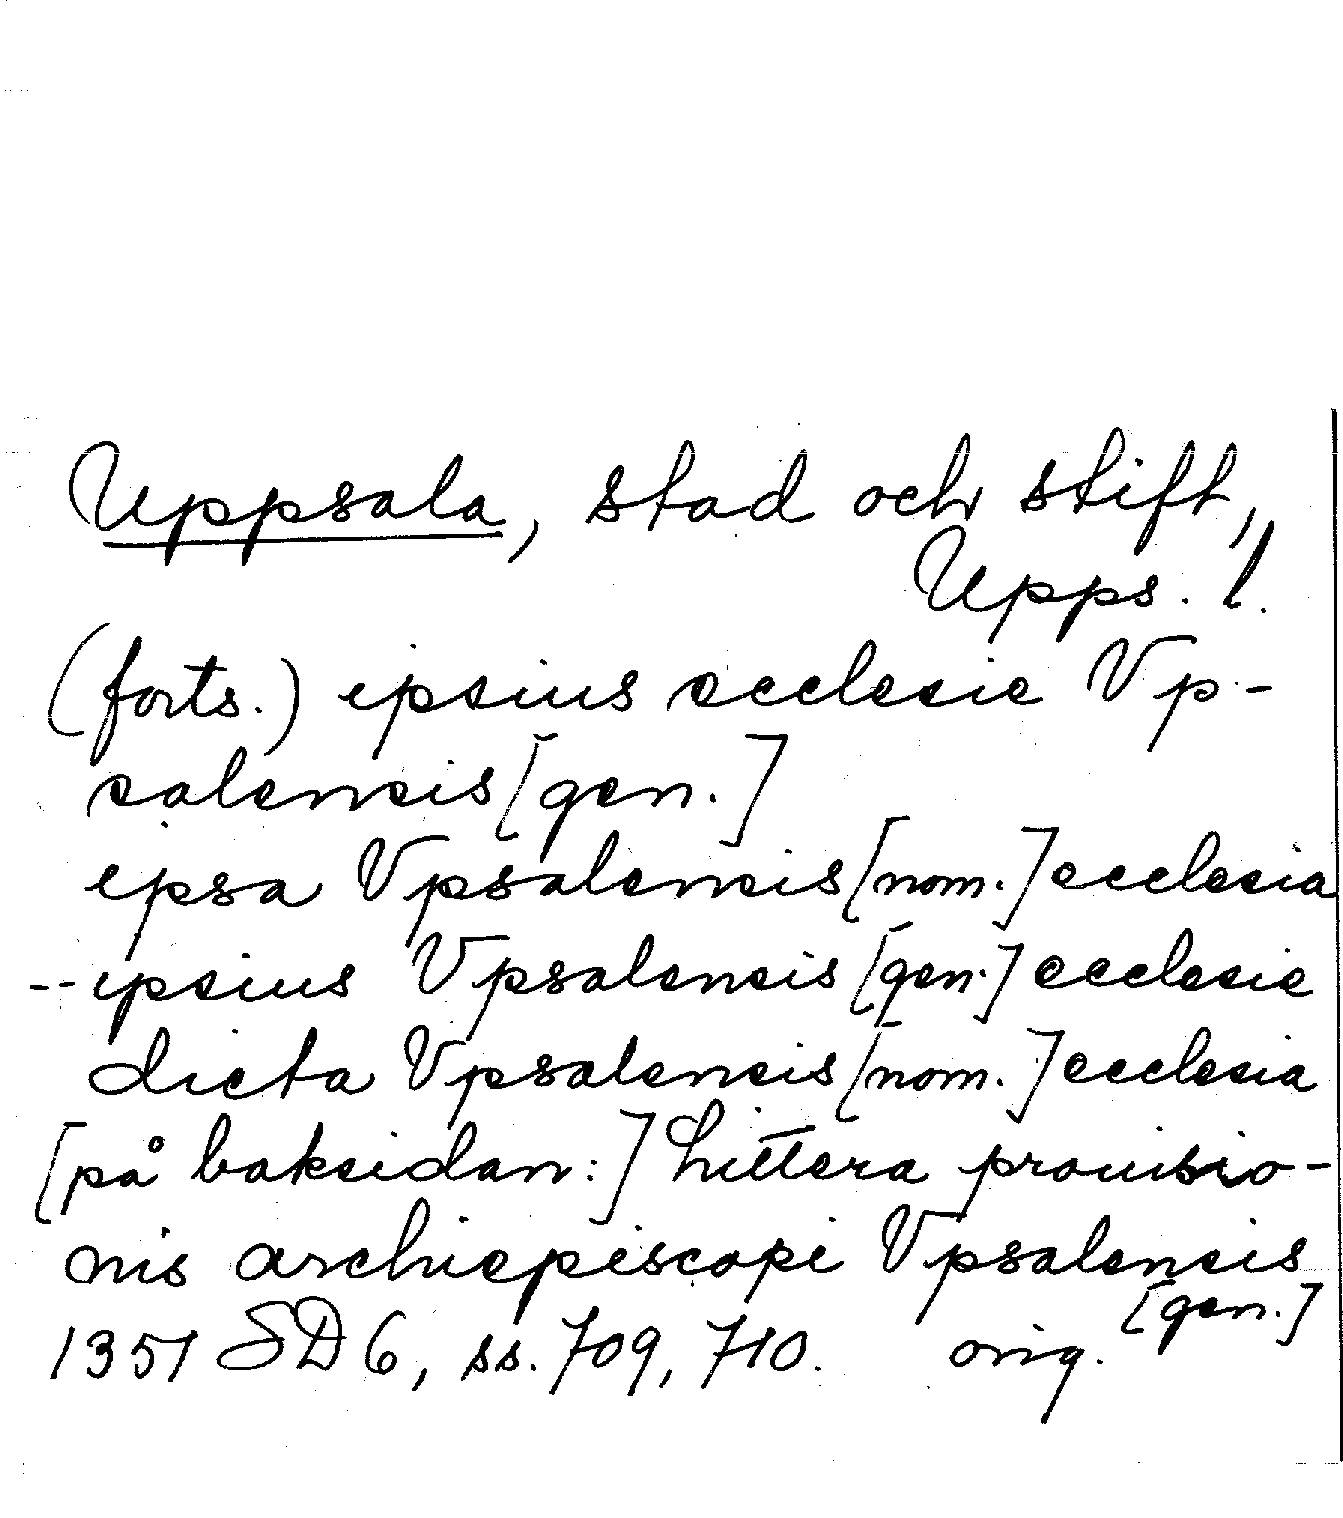 Uppsala, stad och stift,
Upps. l.
(forts.) ipsius ecclesie Vp-
salensis [gen.]
ipsa Vpsalensis [nom.] ecclesia
-- ipsius Vpsalensis [gen.] ecclesie
dicta Vpsalensis [nom.] ecclesia
[på baksidan:] Littera prouisio-
nis archiepiscopi Vpsalensis
[gen.]
1351 SD 6, ss. 709, 710. orig.